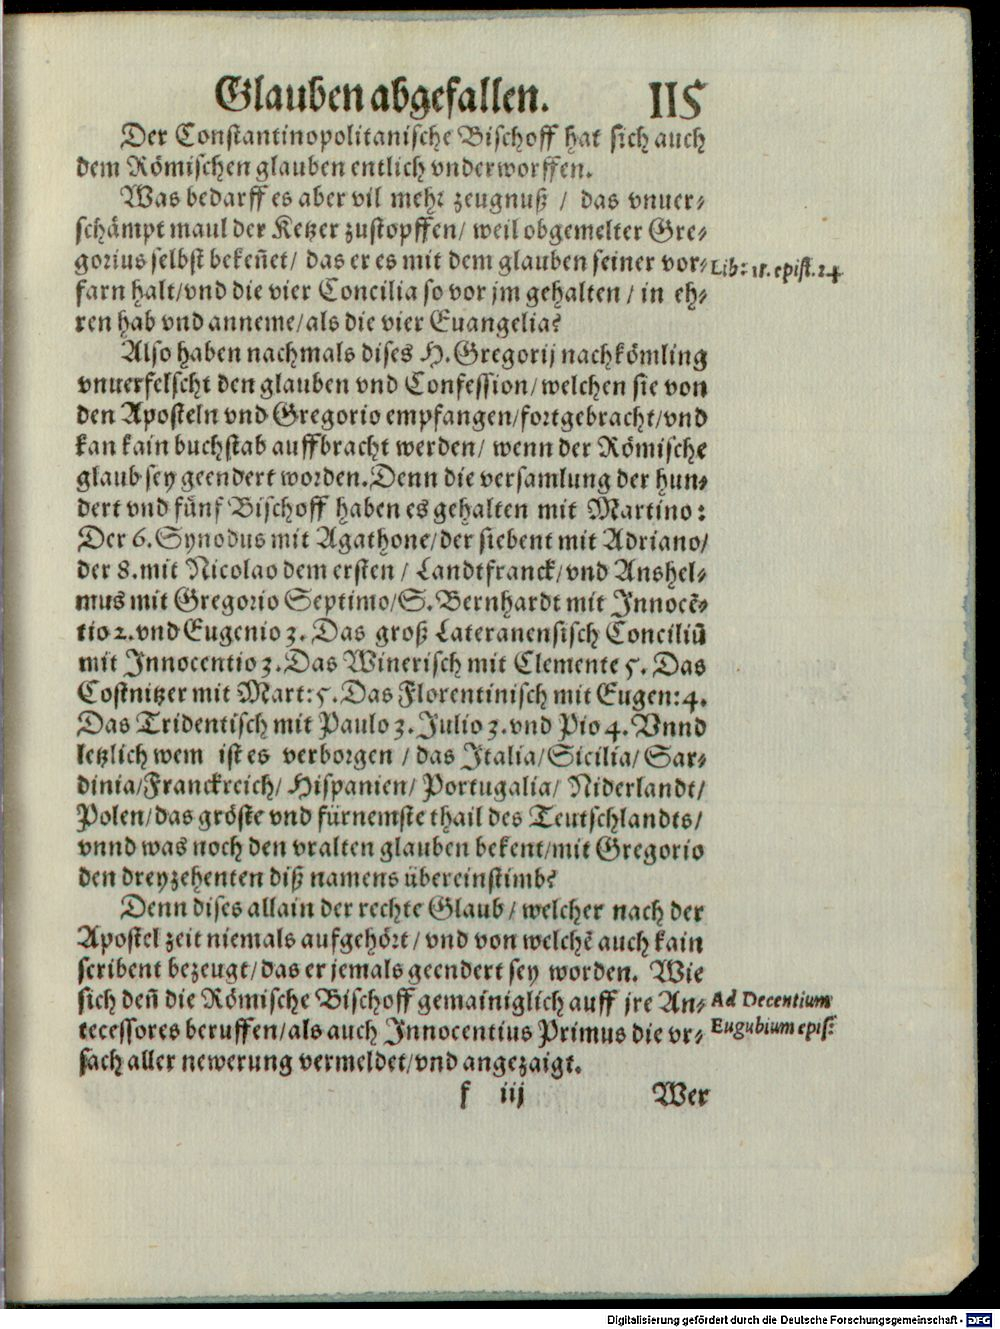 Glauben abgefallen. 115
Der Constantinopolitanische Bischoff hat sich auch
dem Römischen glauben entlich vnderworffen.
Was bedarff es aber vil mehr zeugnuß / das vnuer⸗
schämpt maul der Ketzer zustopffen/ weil obgemelter Gre⸗
gorius selbst bekeñet/ das er es mit dem glauben seiner vor⸗
Lib: 11. epist. 24
farn halt/vnd die vier Concilia so vor jm gehalten / in eh⸗
ren hab vnd anneme/als die vier Euangelia?
Also haben nachmals dises H. Gregorij nachkömling
vnuerfelscht den glauben vnd Confession/welchen sie von
den Aposteln vnd Gregorio empfangen/fortgebracht/vnd
kan kain buchstab auffbracht werden/ wenn der Römische
glaub sey geendert worden. Denn die versamlung der hun⸗
dert vnd fünf Bischoff haben es gehalten mit Martino:
Der 6. Synodus mit Agathone/der siebent mit Adriano/
der 8. mit Nicolao dem ersten / Landtfranck/vnd Anshel⸗
mus mit Gregorio Septimo/S. Bernhardt mit Innocẽ⸗
tio 2. vnd Eugenio 3. Das groß Lateranensisch Conciliũ
mit Innocentio 3. Das Winerisch mit Clemente 5. Das
Costnitzer mit Mart: 5. Das Florentinisch mit Eugen: 4.
Das Tridentisch mit Paulo 3. Julio 3. vnd Pio 4. Vnnd
letzlich wem ist es verborgen / das Italia/Sicilia/ Sar⸗
dinia/Franckreich/ Hispanien/ Portugalia/ Niderlandt/
Polen/das gröste vnd fürnemste thail des Teutschlandts/
vnnd was noch den vralten glauben bekent/mit Gregorio
den dreyzehenten diß namens übereinstimb?
Denn dises allain der rechte Glaub / welcher nach der
Apostel zeit niemals aufgehört / vnd von welchẽ auch kain
scribent bezeugt/das er jemals geendert sey worden. Wie
sich deñ die Römische Bischoff gemainiglich auff jre An⸗
Ad Decentium
tecessores beruffen/als auch Innocentius Primus die vr⸗
Eugubium epis:
sach aller newerung vermeldet/vnd angezaigt.
f iij Wer
Digitalisierung gefördert durch die Deutsche Forschungsgemeinschaft - DFG